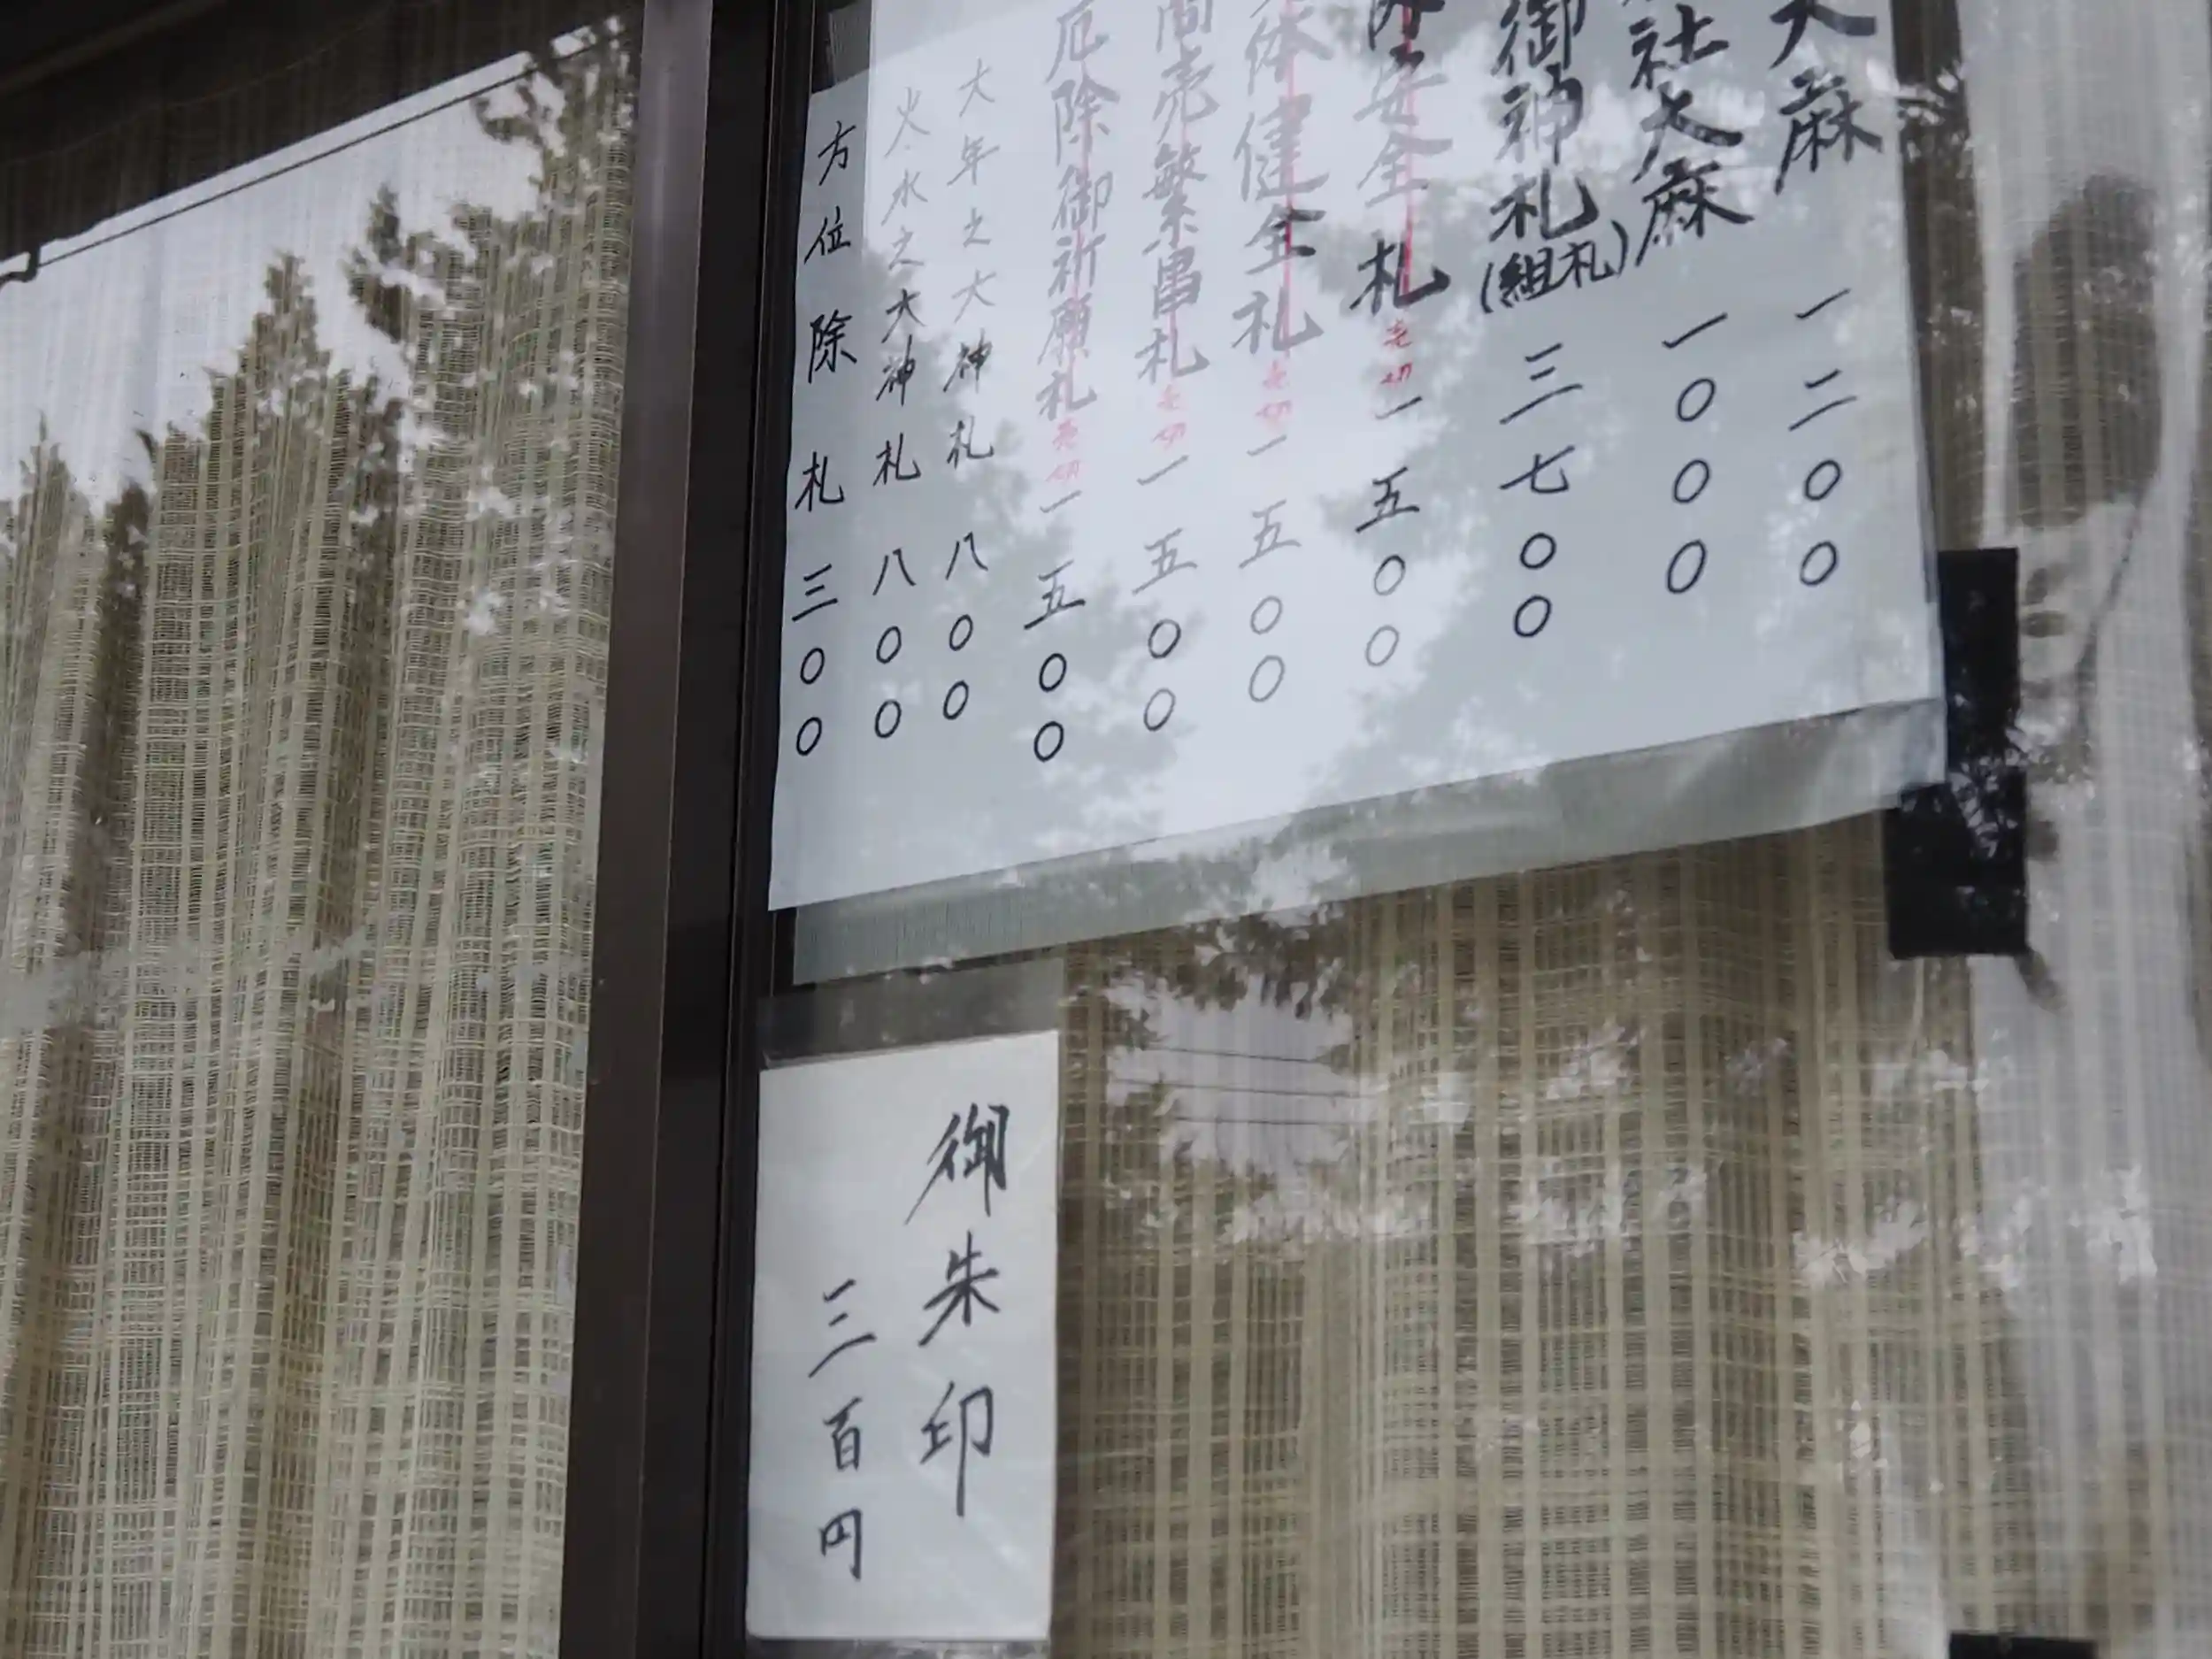 大麻 一二〇〇
社大麻 一〇〇〇
御神札(組札) 三七〇〇
安全札 売切 一五〇〇
体健全札 売切 一五〇〇
商売繁昌札 売切 一五〇〇
厄除御祈願札 売切 一五〇〇
大年之大神札 八〇〇
火水之大神札 八〇〇
方位除札 三〇〇
御朱印
三百円